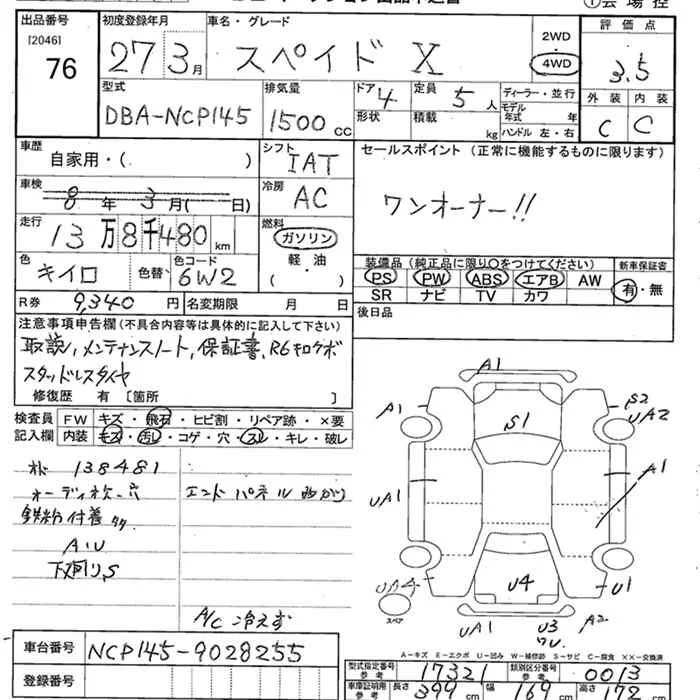 出品番号 [2046] 76
初度登録年月 27 3月
車名・グレード スペイド X
2WD 4WD
評価点 3.5
型式 DBA-NCP145
排気量 1500 cc
ドア 4 定員 5人
形状 積載 kg
ディーラー・並行
モデル年式 年
ハンドル 左・右
外装 内装
C C
車歴 自家用・( )
シフト IAT
セールスポイント (正常に機能するものに限ります)
ワンオーナー!!
車検 8年 3月( 日)
冷房 AC
走行 13万8千480 km
燃料 ガソリン 軽・油 ( )
色 キイロ 色替 色コード 6W2
装備品 (純正品に限り○をつけてください)
PS PW ABS エアB AW
SR ナビ TV カワ
新車保証書 有・無
R券 9,340円 名変期限 月 日
後日品
注意事項申告欄 (不具合内容等は具体的に記入して下さい)
取説, メンテナンスノート, 保証書, R6キロケボ
スタッドレスタイヤ
修復歴 有 [箇所 ]
検査員記入欄
FW キズ・飛石・ヒビ割・リペア跡・×要
内装 キズ・汚レ・コゲ・穴・スレ・キレ・破レ
138481
鉄粉付着
エンドパネル曲がり
A・U
下廻りS
A/C冷えず
A1
A1 S2
UA2
S1
UA1 A1
UA4 U4 U1
スペア
UA1 U3 A2
A-キズ E-エクボ U-凹み W-補修跡 S-サビ C-腐食 ××-交換済
車台番号 NCP145-9028255
登録番号
型式指定番号 参考 17321 類別区分番号 参考 0013
車庫証明用 参考 長さ 399cm 幅 169cm 高さ 172cm